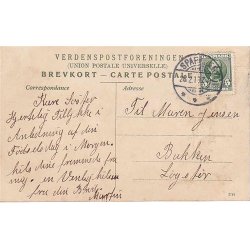 VERDENSPOSTFORENINGEN
(UNION POSTALE UNIVERSELLE)
BREVKORT - CARTE POSTALE
Correspondance
Adresse
Kære Søster
Hjertelig Tillykke i
Anledning af din
Fødselsdag i Morgen.
hils dine
mig. en Venlig Hilsen
fra din
Til Maren Jensen
Bakken
Løgstør